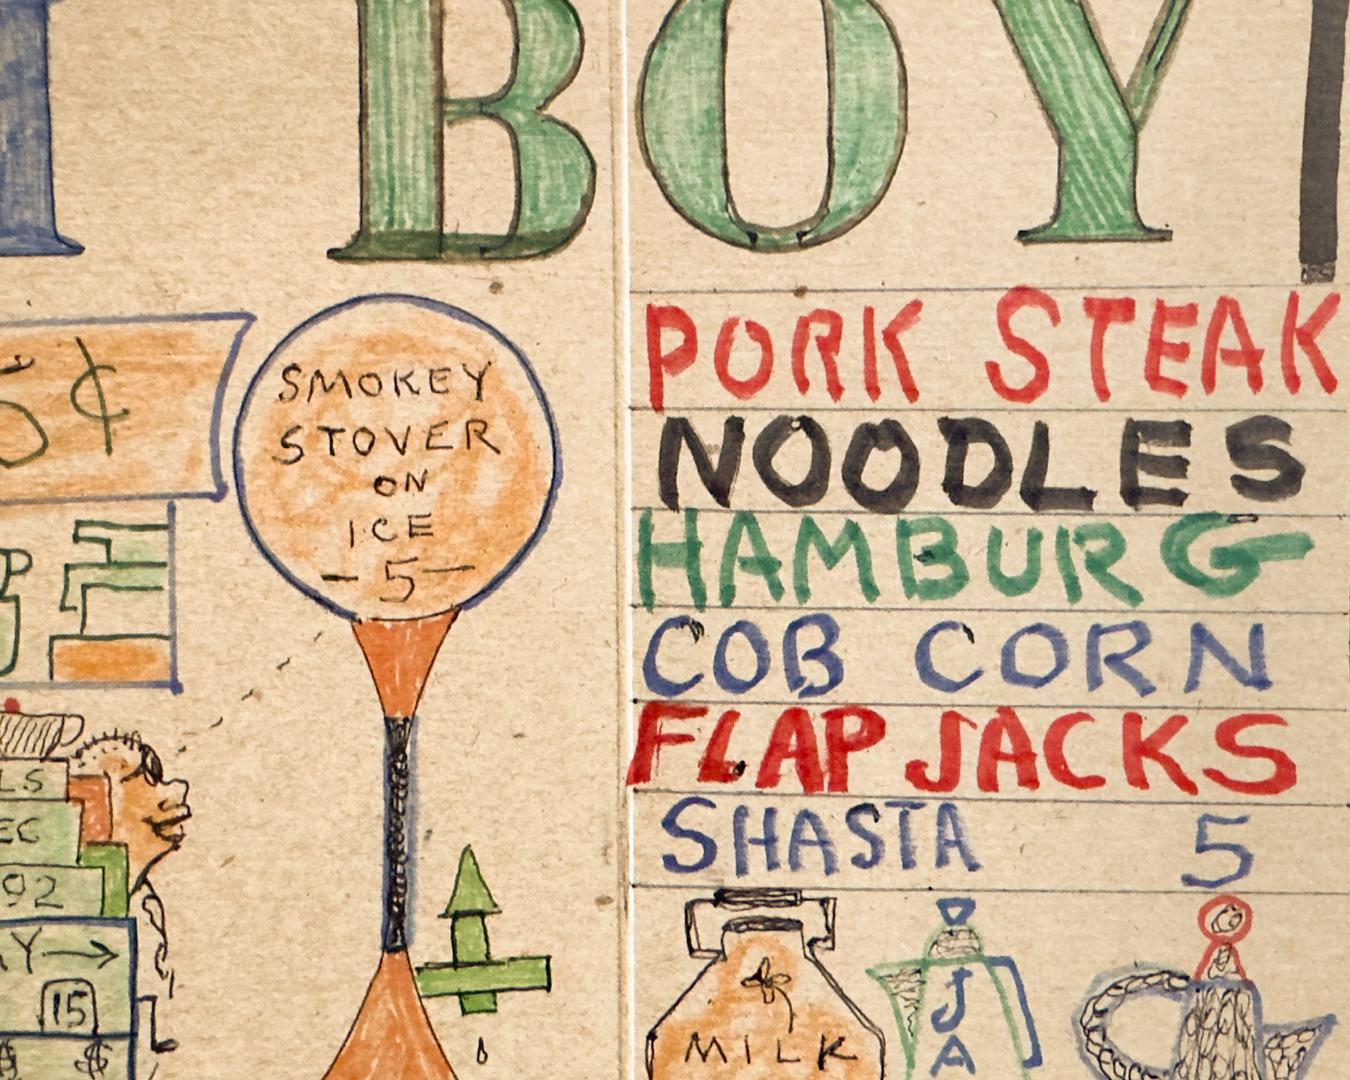 BOY
5¢
SMOKEY
STOVER
ON
ICE
- 5 -
PORK STEAK
NOODLES
HAMBURG
COB CORN
FLAP JACKS
SHASTA 5
LS
EC
92
Y→
15
$ $
MILK
J
A